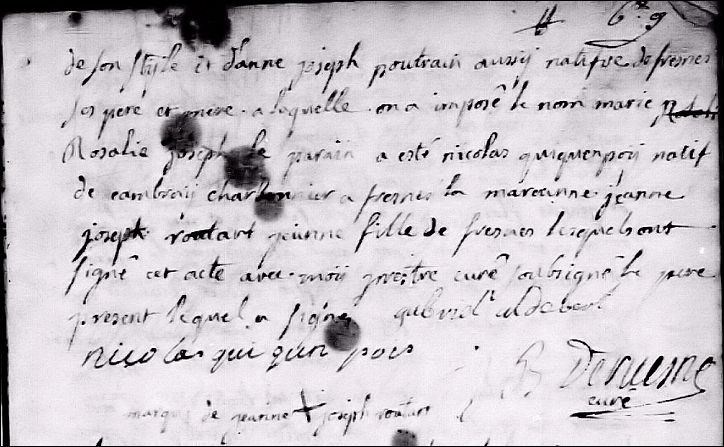 de son stile et d'anne joseph poutrain aussy natifve de fresnes
ses pere et mere a laquelle on a imposé le nom marie
Rosalie joseph le parain a esté nicolas quiquenpoy natif
de cambray charbonnier a fresnes la maraine jeanne
joseph routart jeunne fille de fresnes lesquels ont
signé cet acte avec moy prestre curé soubsigné le pere
present lequel a signé gabriel aldebert
nicolas qui quen pois
B Denusme
curé
marque de jeanne + joseph routart